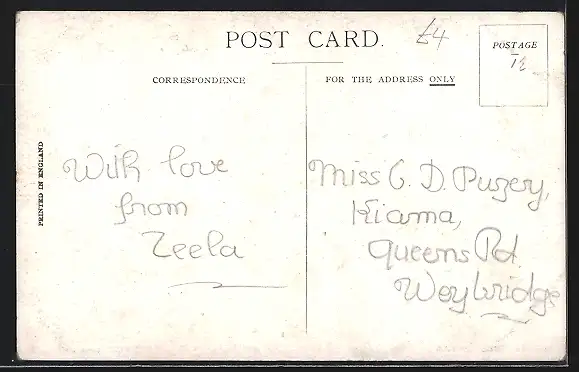 POST CARD.
£4
POSTAGE
CORRESPONDENCE
FOR THE ADDRESS ONLY
PRINTED IN ENGLAND
With love
from
Zeela
Miss C. D. Puzey,
Kiama,
Queens Rd.
Weybridge